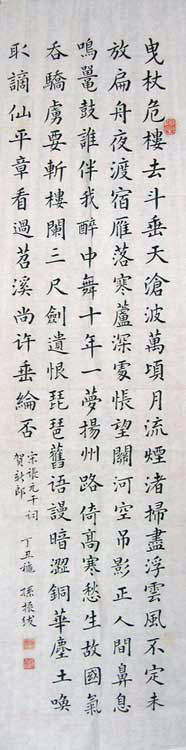 曳杖危樓去斗垂天滄波萬頃月流煙渚掃盡浮雲風不定未
放扁舟夜渡宿雁落寒蘆深處悵望關河空吊影正人間鼻息
鳴鼉鼓誰伴我醉中舞十年一夢揚州路倚高寒愁生故國氣
吞驕虜要斬樓闌三尺劍遺恨琵琶舊语謾暗澀銅華塵土喚
取謫仙平章看過苕溪尚許垂綸否
宋張元干詞
賀新郎
丁丑穐 孫振